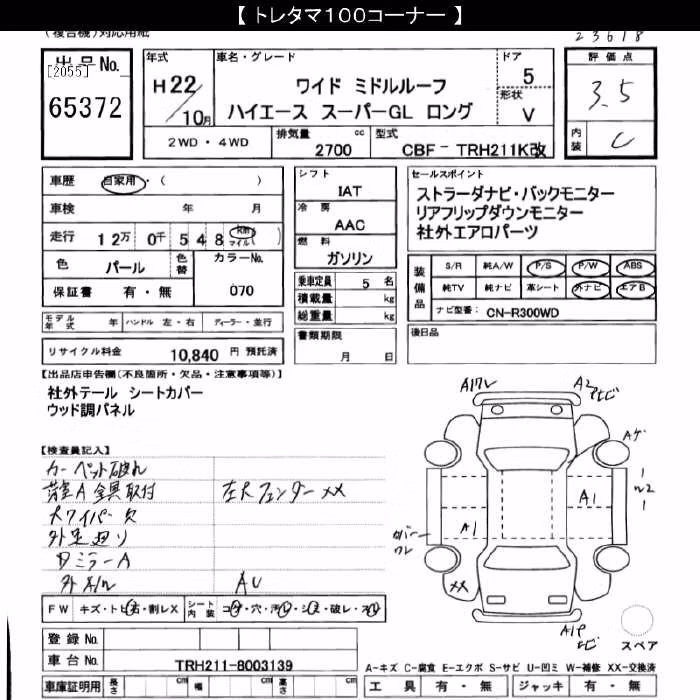 【 トレタマ100コーナー 】
(複合機)対応用紙
23618
出品No.
[2055]
65372
年式
H22/10月
車名・グレード
ワイド ミドルルーフ
ハイエース スーパーGL ロング
ドア
5
形状
V
評価点
3.5
内装
C
2WD・4WD
排気量 cc
2700
型式
CBF- TRH211K改
車歴 自家用・( )
車検 年 月
走行 12万 0千 548 km マイル ( )
色 パール 色替
カラーNo.
070
保証書 有・無
シフト
IAT
冷房
AAC
燃料
ガソリン
乗車定員 5 名
積載量 kg
総重量 kg
セールスポイント
ストラーダナビ・バックモニター
リアフリップダウンモニター
社外エアロパーツ
装備品
S/R 純A/W P/S P/W ABS
純TV 純ナビ 革シート 外ナビ エアB
ナビ型番: CN-R300WD
モデル年式 年 ハンドル 左・右 ディーラー・並行
リサイクル料金 10,840 円 預託済
書類期限
月 日
後日品
【出品店申告欄(不良箇所・欠品・注意事項等)】
社外テール シートカバー
ウッド調パネル
【検査員記入】
カーペット破れ
荷室A 金具取付
左Rフェンダー XX
大ワイパー欠
外品廻り
ミラーA
AU
A17V
A2
Aゲ
A1
A1
カバー
ワレ
XX
A1P
スペア
FW キズ・トビ石・割レX
シート内装 コゲ・穴・汚レ・シミ・破レ・スレ
登録No.
車台No. TRH211-8003139
車庫証明用 長さ cm 幅 cm 高さ cm
A-キズ C-腐食 E-エクボ S-サビ U-凹ミ W-補修 XX-交換済
工具 有・無 ジャッキ 有・無